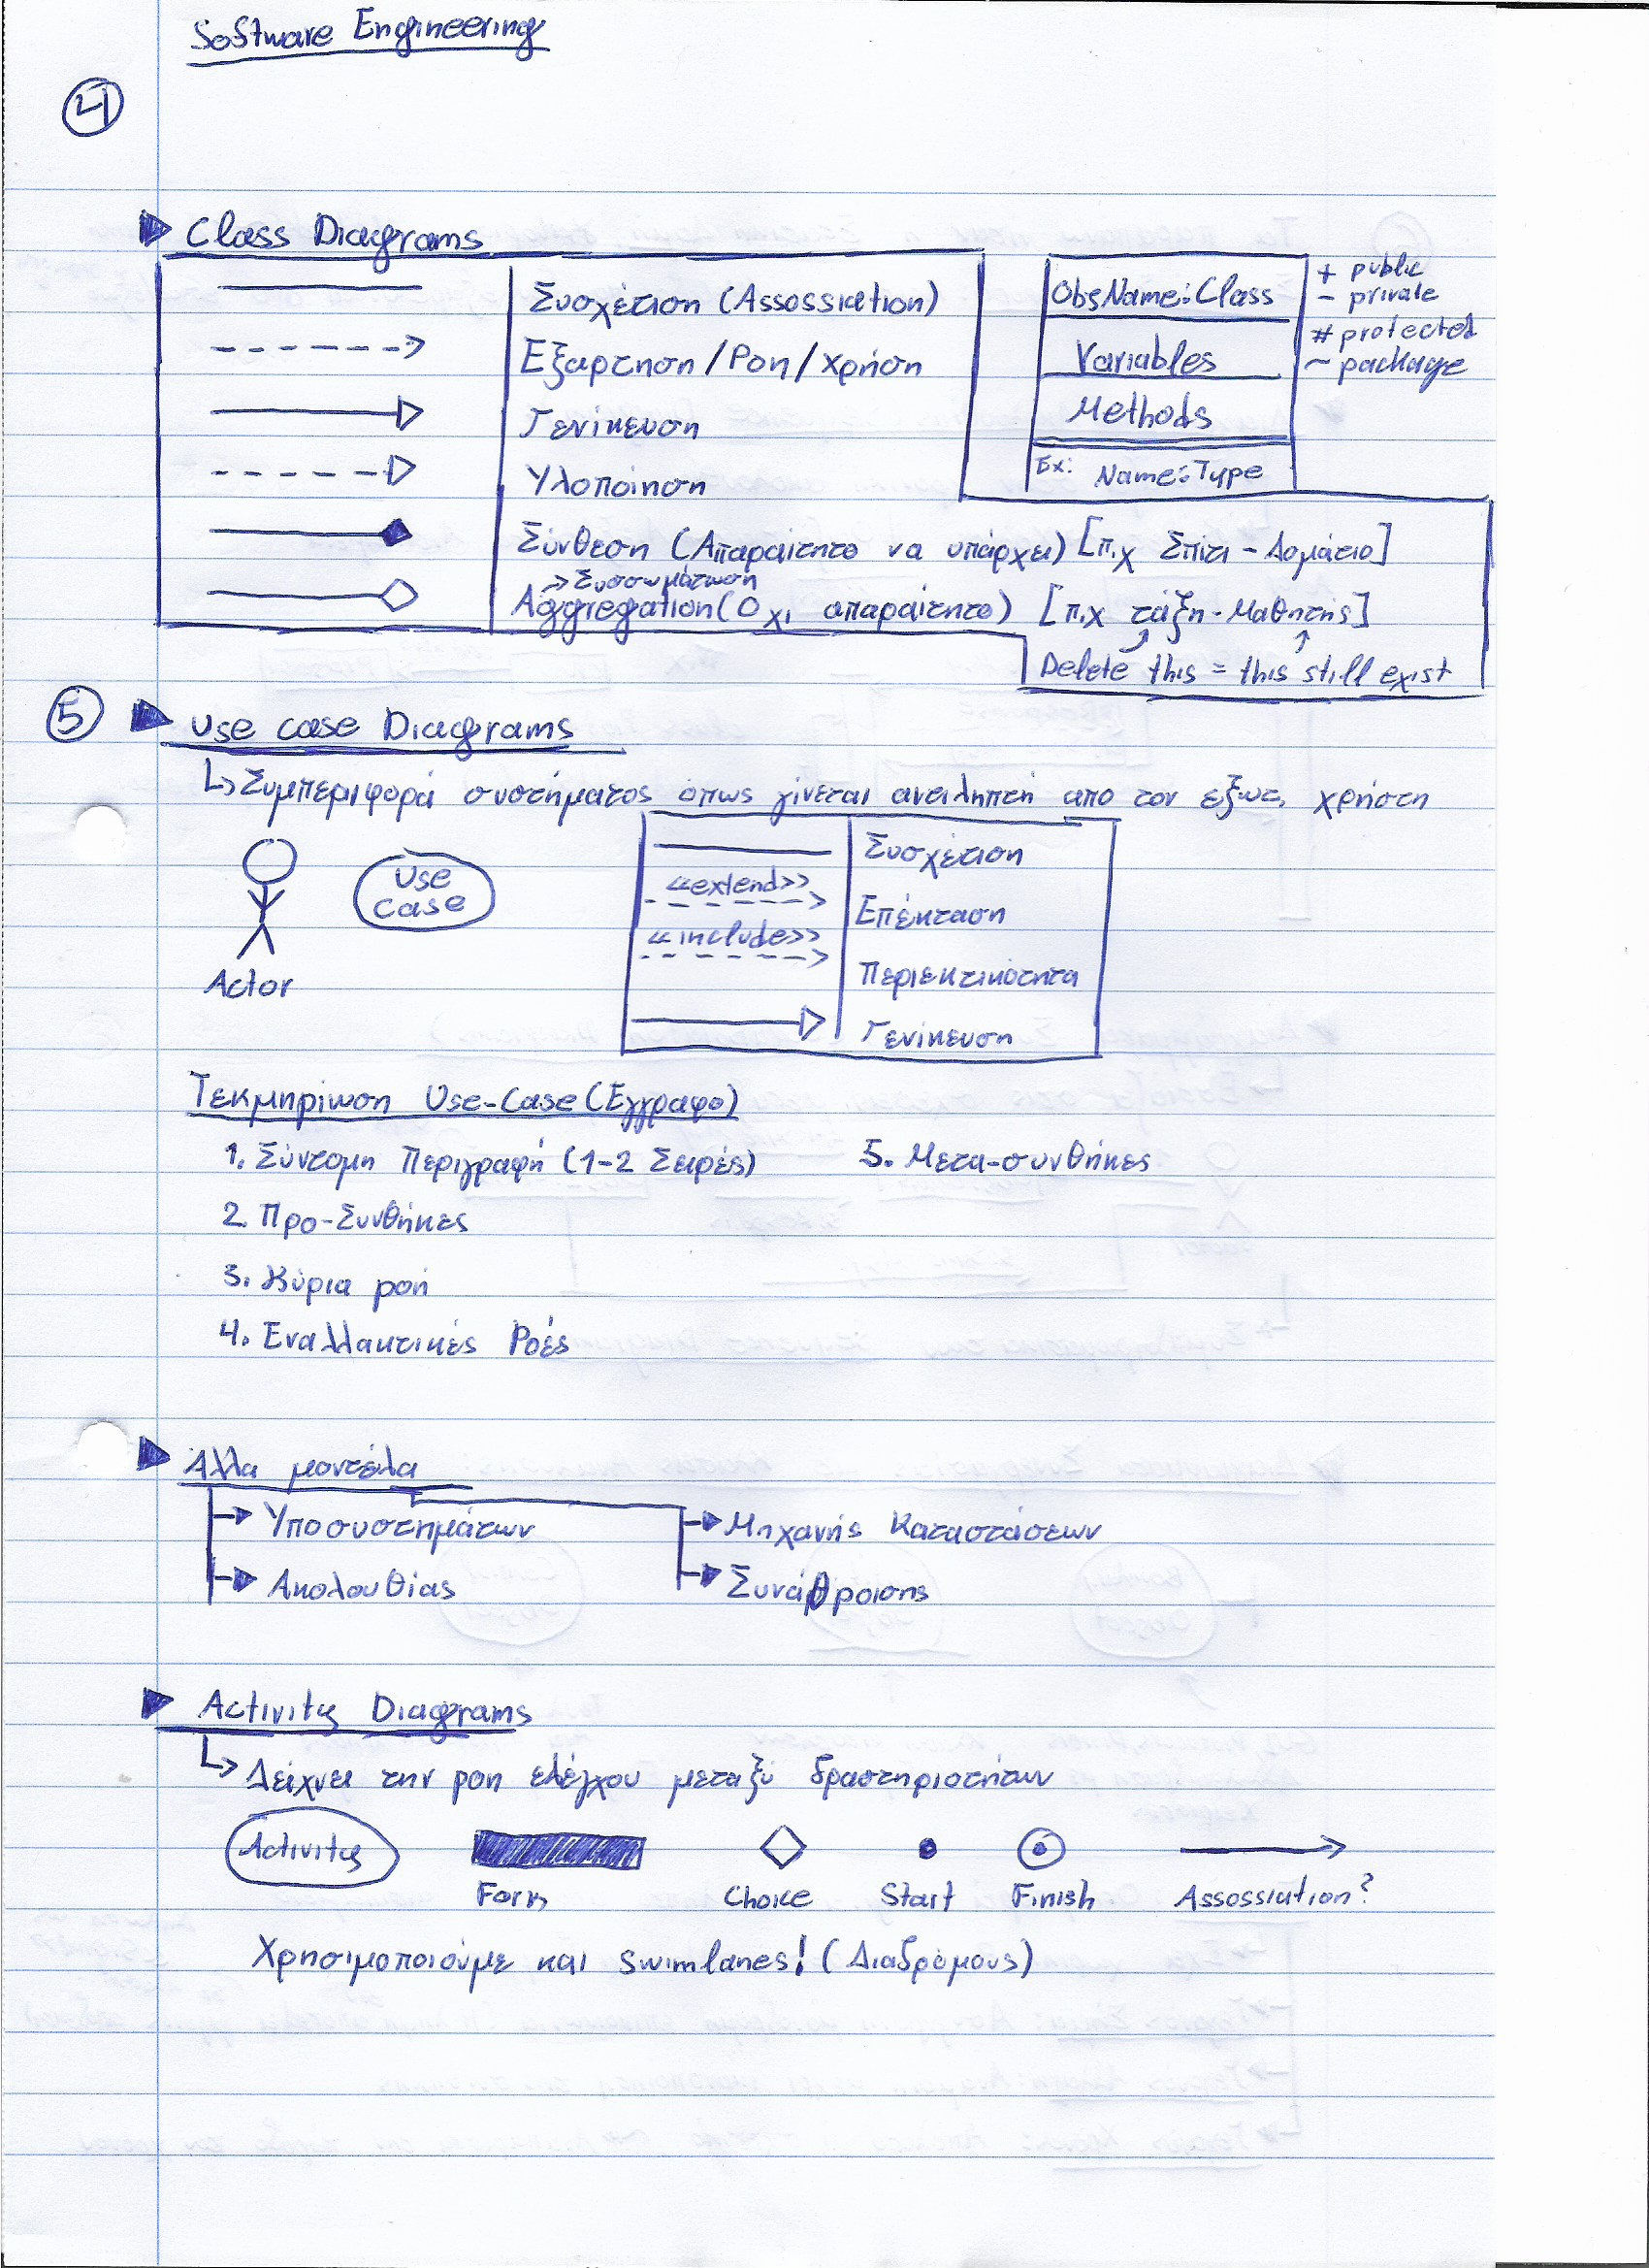 Software Engineering
4
Class Diagrams
Συσχέτιση (Assossiation)
Εξαρτηση / Ροη / χρήση
Γενίκευση
Υλοποίηση
Σύνθεση (Απαραίτητο να υπάρχει) [π.χ Σπίτι - Δομάτιο]
→ Συσσωμάτωση
Aggregation (Οχι απαραίτητο) [π.χ τάξη - Μαθητής]
Delete this = this still exist
ObjName: Class
Variables
Methods
Ex: Name: Type
+ public
- private
# protected
~ package
5
Use case Diagrams
Συμπεριφορά συστήματος όπως γίνεται αντιληπτή απο τον εξωτ. χρήστη
Use
case
Actor
Συσχέτιση
<<extend>>
Επέκταση
<<include>>
Περιεκτικότητα
Γενίκευση
Τεκμηρίωση Use-Case (Εγγραφο)
1. Σύντομη Περιγραφή (1-2 Σειρές)
2. Προ-Συνθήκες
3. Κύρια ροή
4. Εναλλακτικές Ροές
5. Μετα-συνθήκες
Αλλα μοντέλα
Υποσυστημάτων
Ακολουθίας
Μηχανής Καταστάσεων
Συνάθροισης
Activity Diagrams
Δείχνει την ροη ελέγχου μεταξύ δραστηριοτήτων
Activity
Fork
Choice
Start
Finish
Assossiation?
Χρησιμοποιούμε και swimlanes! (Διαδρόμους)